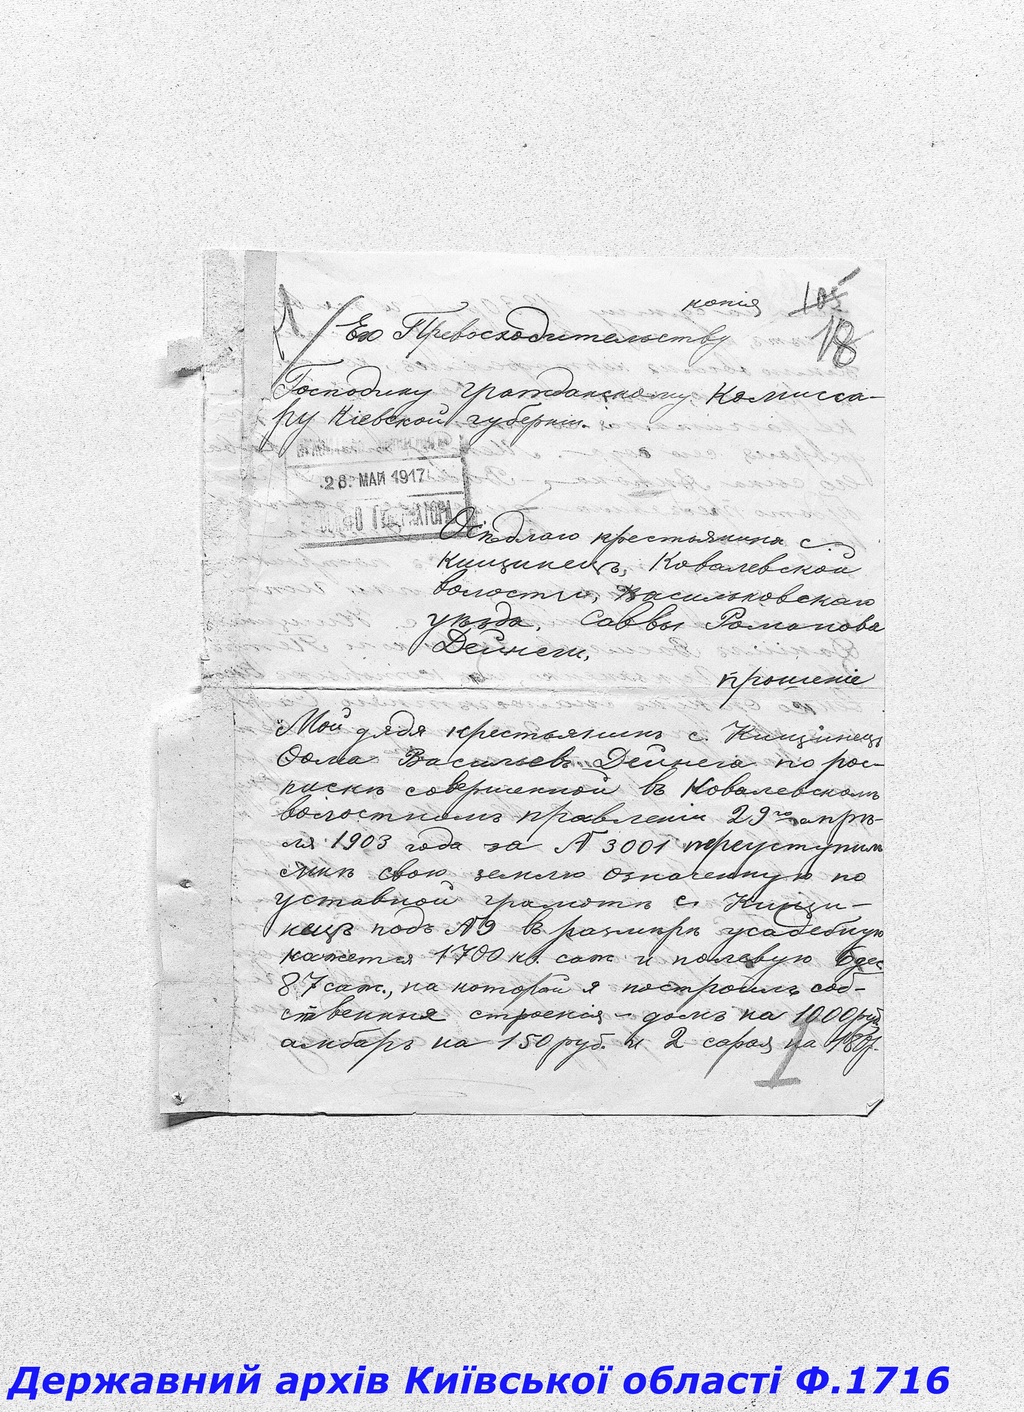 копія
105
18
Его Превосходительству
Господину гражданскому Комисса-
ру Кіевской губерніи.
26. МАЙ 1917
Осѣдлаго крестьянина с.
Кищинецъ, Ковалевской
волости, Васильковскаго
уѣзда, Саввы Романова
Дейнеги,
прошеніе
Мой дядя крестьянинъ с. Кищинецъ
Ѳома Васильевъ Дейнега по рос-
пискѣ совершенной въ Ковалевскомъ
волостномъ правленіи 29го апрѣ-
ля 1903 года за № 3001 переступилъ
мнѣ свою землю означенную по
уставной грамотѣ с. Кищи-
нецъ подъ №9 въ размѣрѣ усадебную
кажется 1700 кв. саж. и полевую 6 дес
87 саж., на которой я построилъ соб-
ственныя строенія - домъ на 1000 руб.
амбаръ на 150 руб. и 2 сарая на 180 р.
Державний архів Київської області Ф.1716